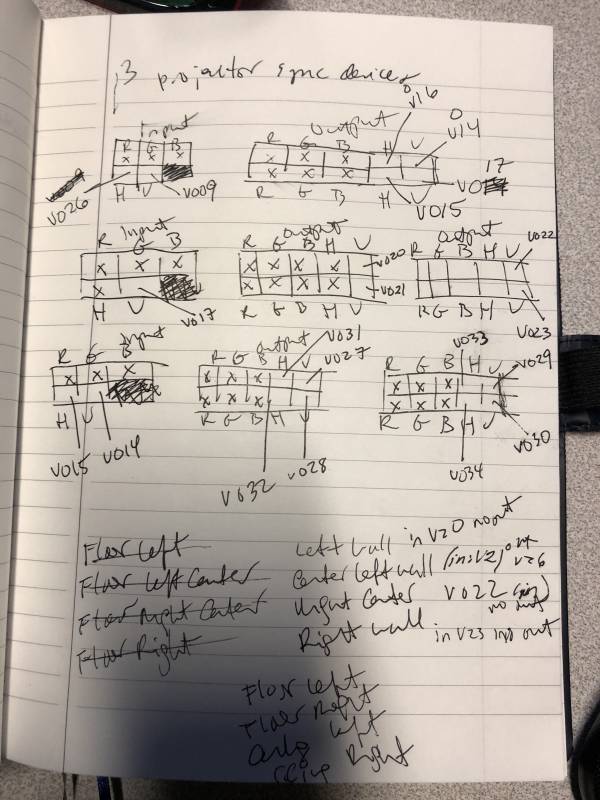 3 projector sync devices
Input Output V016 V014
R G B R G B H V
x x x x x x
x x x
H V R G B H V
V026 V009 V015 V017
R Input G B Output R G B H V Output R G B H V V022
x x x x x x x V020
x x x x x V021
H V R G B H V R G B H V
V017 V023
Input Output V031 V033
R G B R G B H V V027 R G B H V V029
x x x x x x x x x
x x x x x x
H V R G B H V R G B H V
V015 V014 V032 V028 V034 V030
Floor Left Left Wall in V20 no out
Floor Left Center Center Left wall (in: V21) out V26
Floor Right Center Right Center V022 (in) no out
Floor Right Right Wall in V23 no out
Floor Left
Floor Right
Left
Right